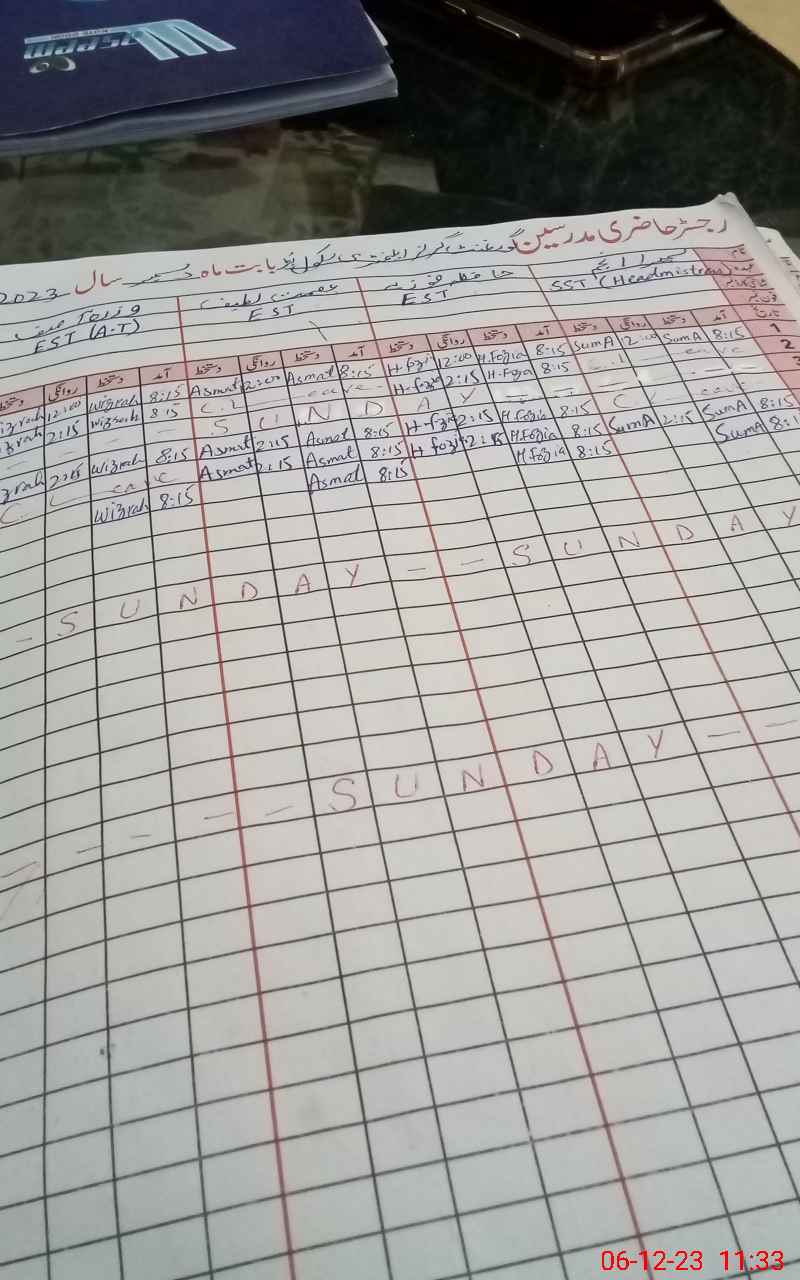 رجسٹر حاضری مدرسین گورنمنٹ گرلز ایلیمنٹری سکول بابت ماہ دسمبر سال 2023
نام سمیرا انجم حافظہ فوزیہ عصمت لطیف
عہدہ SST (Headmistress) EST EST EST (A.T)
تاریخ آمد دستخط روانگی دستخط آمد دستخط روانگی دستخط آمد دستخط روانگی دستخط آمد دستخط روانگی دستخط
1 8:15 SumA 12:00 SumA 8:15 H.fozia 12:00 H.fozi 8:15 Asmat 12:00 Asmat 8:15 Wizrah 12:00
2 C.L eave 8:15 H.fozia 2:15 H.fozi C.L eave 8:15 Wizrah 2:15
S U N D A Y
8:15 SumA 2:15 SumA 8:15 H.fozia 2:15 H-fozi 8:15 Asmat 2:15 Asmat 8:15 Wizrah 2:15
SumA C.L eave 8:15 H.fozia 2:15 H fozi 8:15 Asmat 2:15 Asmat C. L eave
8:15 H fozia 8:15 Asmat 8:15 Wizrah
- S U N D A Y - - S U N D A Y
- - - - S U N D A Y - -
06-12-23 11:33